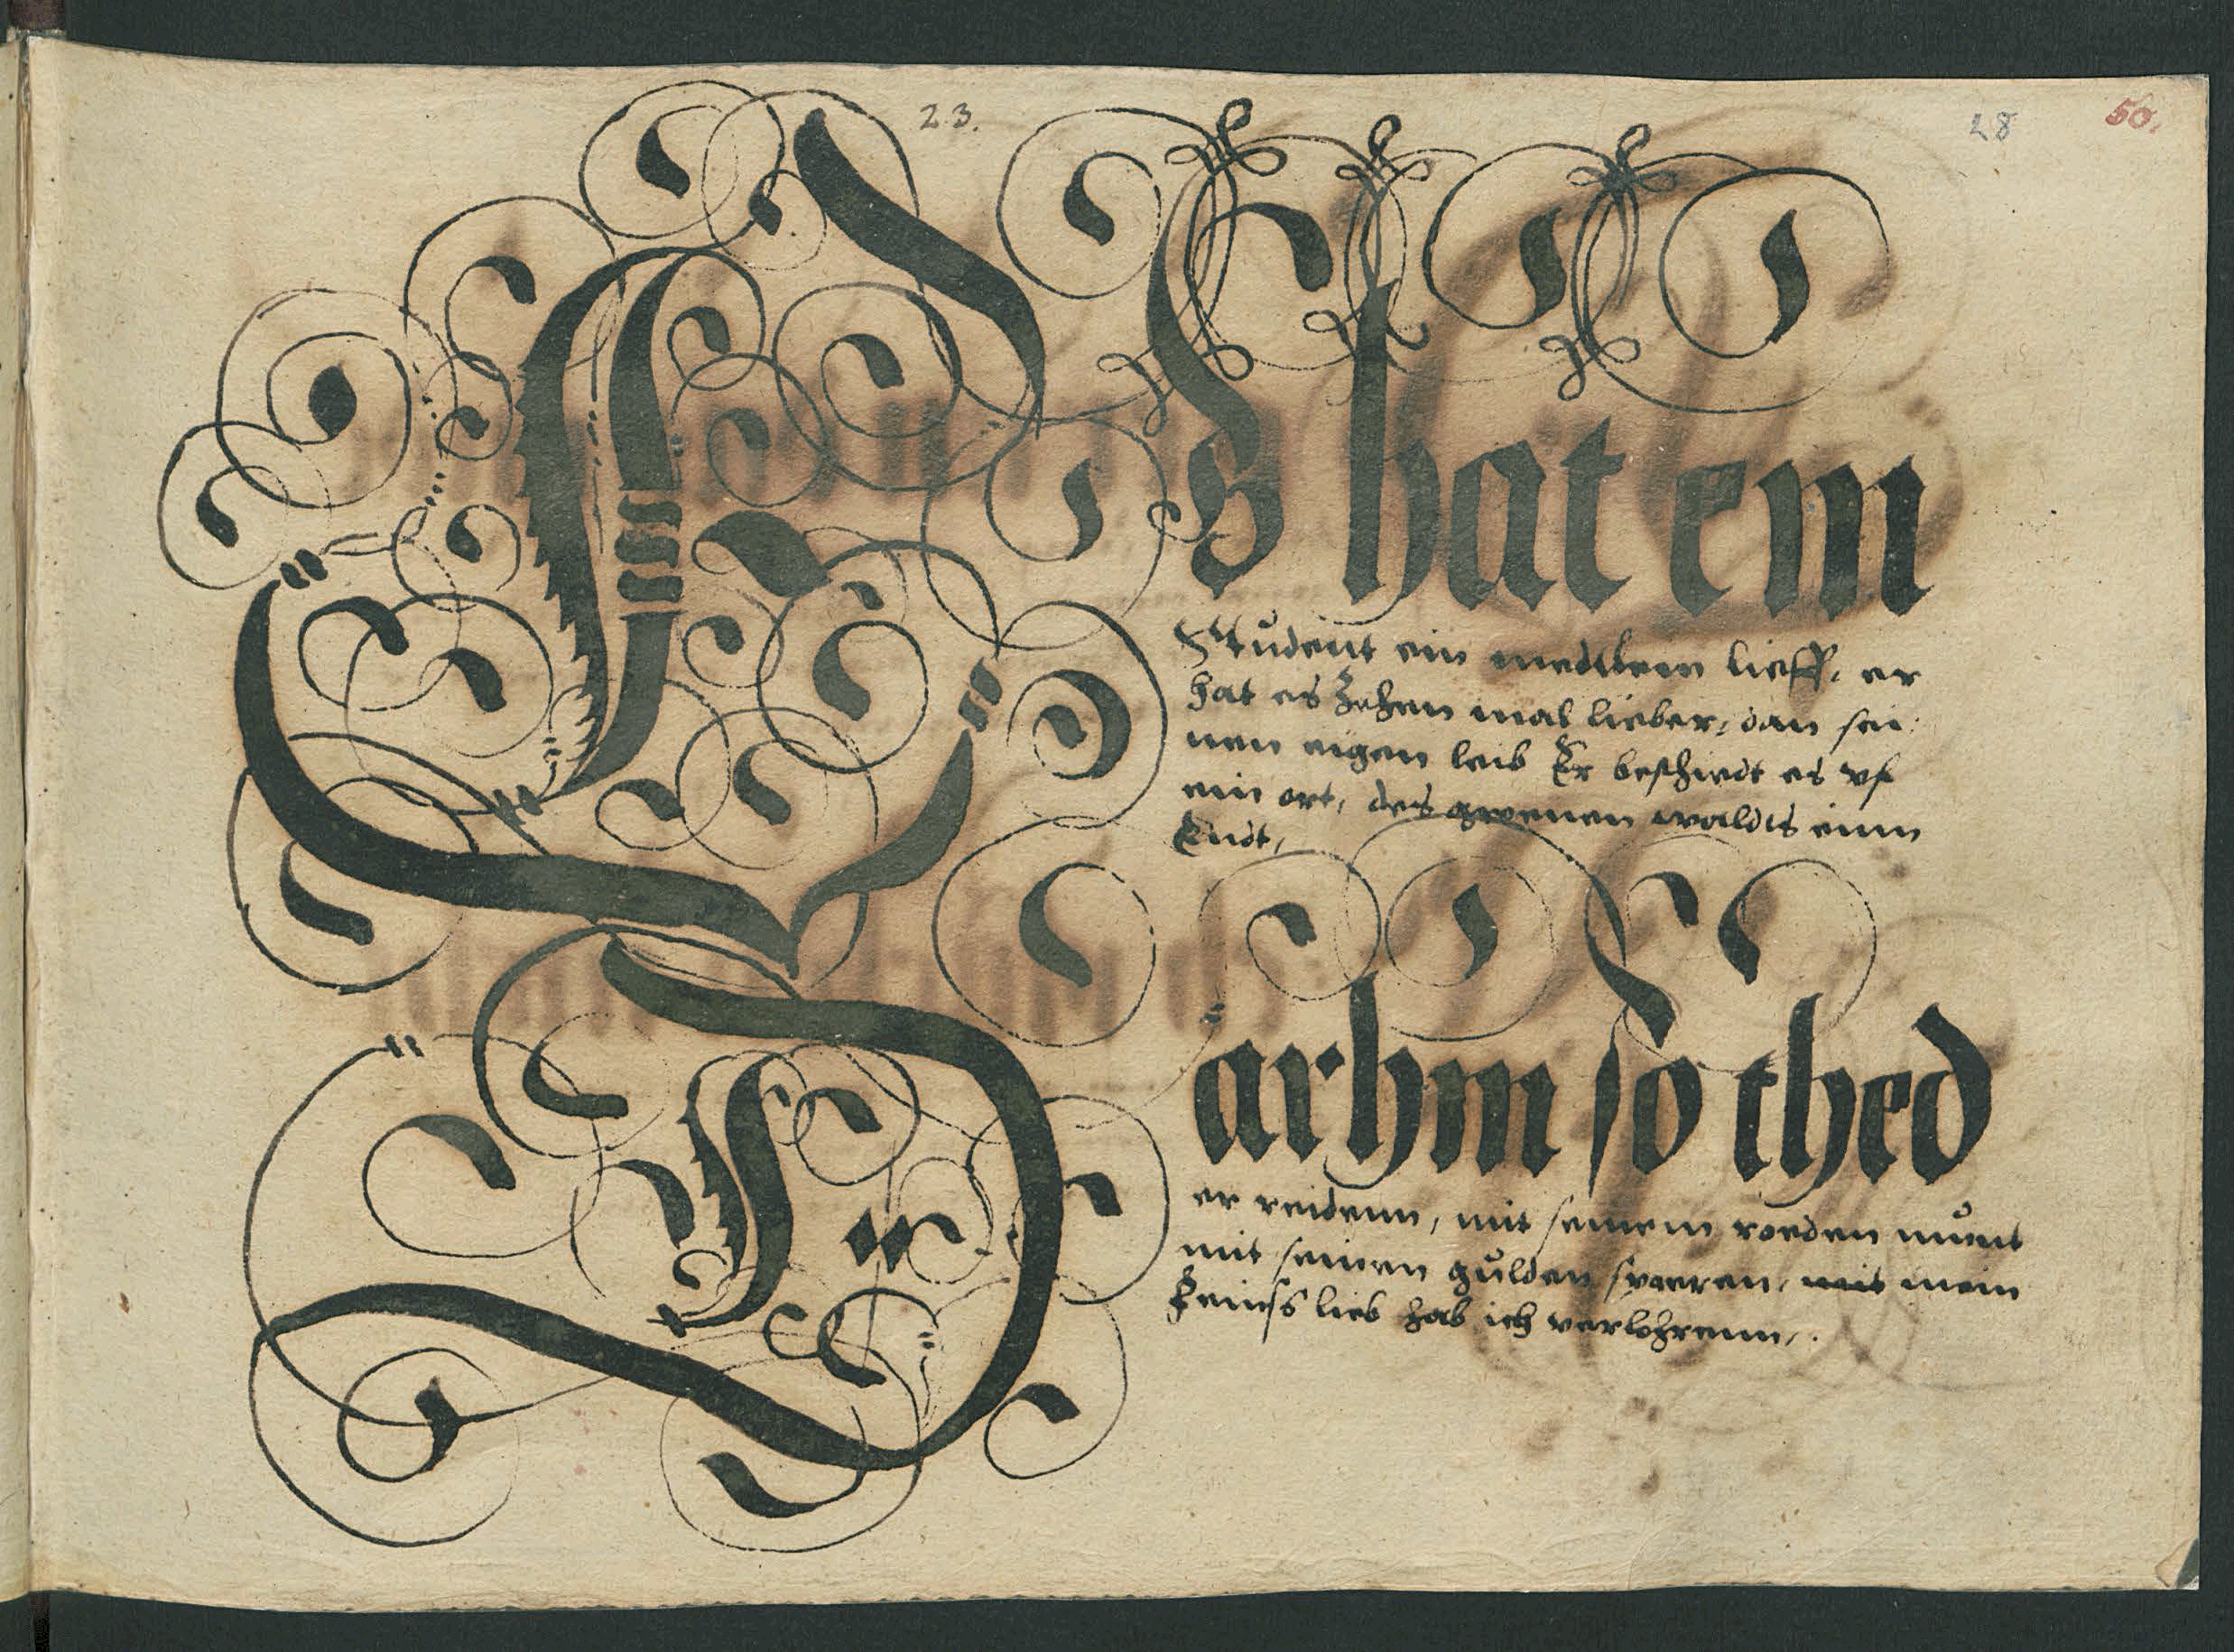 23.
28
50.
Es hat em
Student ein medtlein lieff, er
hat es zehen mal lieber, dan sei:
nen eigen leib Er beschiedt es vf
ein ort, des groenen waldts einn
Endt,
Darhm so thed
er reidenn, mit seinem roeden munt
mit seinen gulden sporen, mit mein
feinss lieb hab ich verlohrenn,.